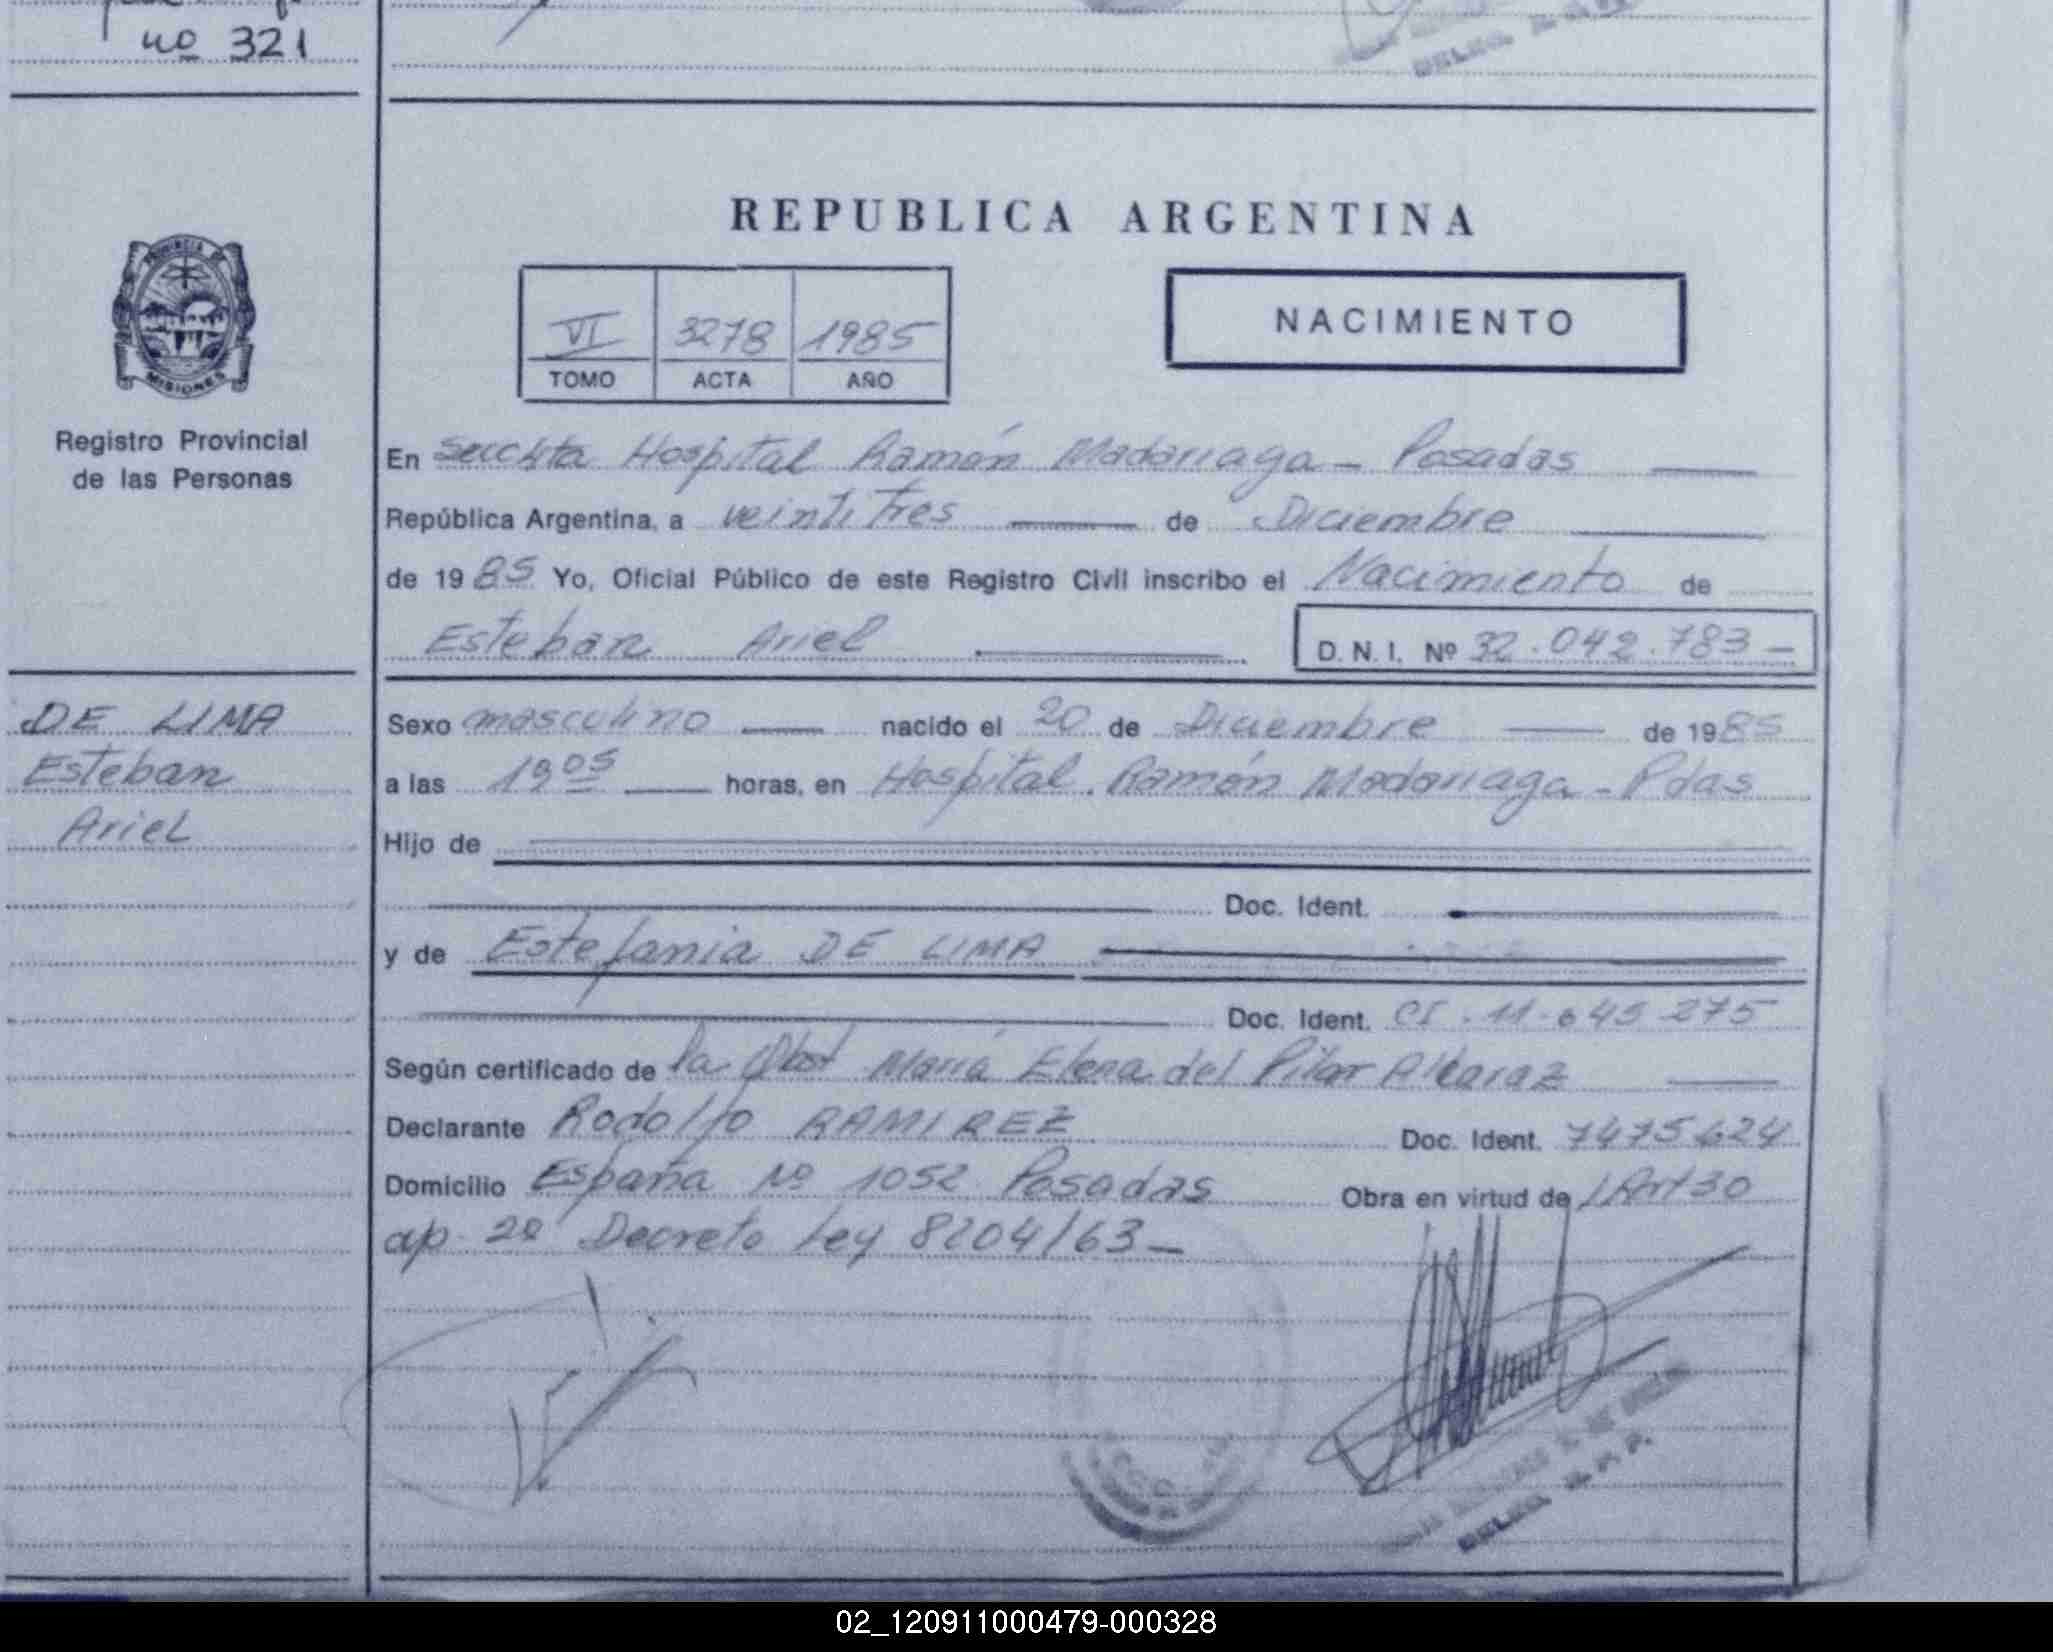 nº 321
REPUBLICA ARGENTINA
PROVINCIA DE
MISIONES
Registro Provincial
de las Personas
VI 3278 1985
TOMO ACTA AÑO
NACIMIENTO
En Hospital Ramón Madariaga - Posadas
República Argentina, a veinti tres de Diciembre
de 1985 Yo, Oficial Público de este Registro Civil inscribo el Nacimiento de
Esteban Ariel D.N.I. Nº 32.042.783-
DE LIMA
Esteban
Ariel
Sexo masculino nacido el 20 de Diciembre de 1985
a las 19 05 horas, en Hospital Ramón Madariaga - Pdas
Hijo de
Doc. Ident.
y de Estefania DE LIMA
Doc. Ident. CI. 11.645 275
Según certificado de la Obst María Elena del Pilar Alcaraz
Declarante Rodolfo RAMIREZ Doc. Ident. 7475624
Domicilio España Nº 1052 Posadas Obra en virtud de Art 30
ap. 2º Decreto Ley 8204/63-
02_120911000479-000328